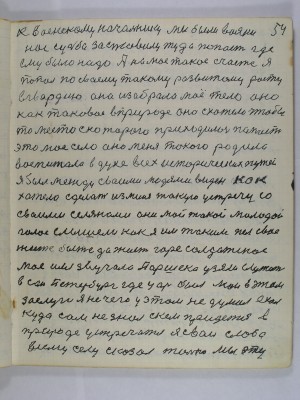 к воинскому начальнику мы были взяты 54
нас судьба заставила туда попасть где
ему было надо. Я на мое такое счастье, я
попал по своему такому развитому росту
в гвардию она избрала моё тело оно
как таковое в природе оно
то место с которого приходилось
это мое село оно меня такого родило
воспитало в духе всех исторических путей
Я был между своими людями виден как
хотело сделать из меня такую встречу со
своими селянами они мой такой молодой
голос слышали как я им таким пел свое
горе солдатское
мое имя звучало Паршека взяли служить
в Сан Петербург где царь был мои в этом
заслуги я нечего у этом не думал а ехал
куда сам не знал с кем придется в
природе устречатся я свои слова
всему селу сказал только мы эту